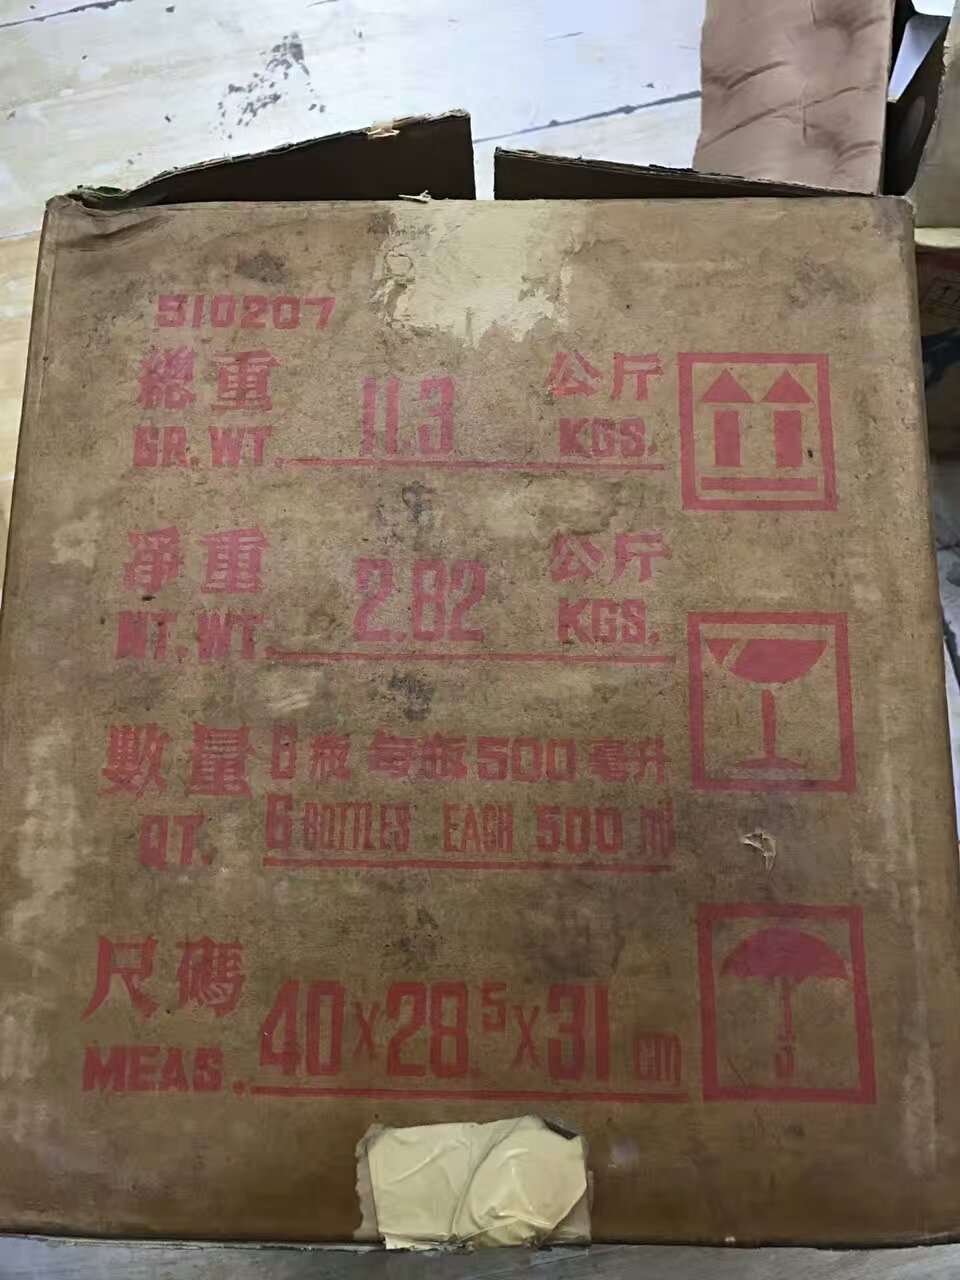 510207
總重 11.3 公斤
GR.WT. KGS.
凈重 2.82 公斤
NT.WT. KGS.
數量 6瓶 每瓶500毫升
QT. 6 BOTTLES EACH 500 ml
尺碼 40x28.5x31 cm
MEAS.